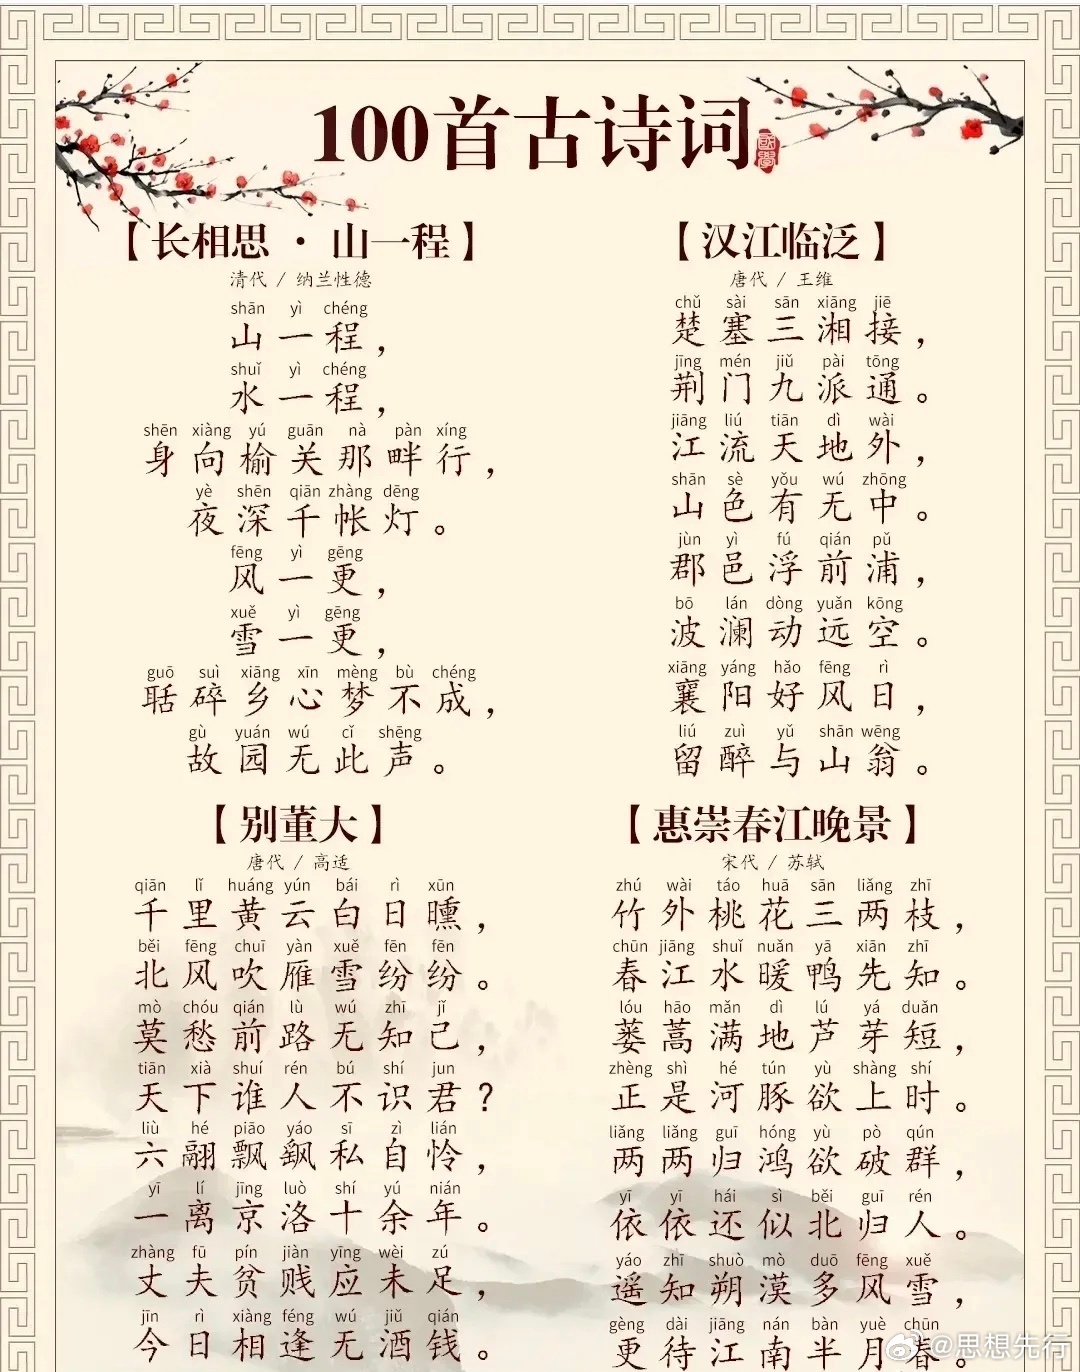 100首古诗词
國學
【长相思·山一程】
清代 / 纳兰性德
shān yì chéng
山一程，
shuǐ yì chéng
水一程，
shēn xiàng yú guān nà pàn xíng
身向榆关那畔行，
yè shēn qiān zhàng dēng
夜深千帐灯。
fēng yì gēng
风一更，
xuě yì gēng
雪一更，
guō suì xiāng xīn mèng bù chéng
聒碎乡心梦不成，
gù yuán wú cǐ shēng
故园无此声。
【汉江临泛】
唐代 / 王维
chǔ sài sān xiāng jiē
楚塞三湘接，
jīng mén jiǔ pài tōng
荆门九派通。
jiāng liú tiān dì wài
江流天地外，
shān sè yǒu wú zhōng
山色有无中。
jùn yì fú qián pǔ
郡邑浮前浦，
bō lán dòng yuǎn kōng
波澜动远空。
xiāng yáng hǎo fēng rì
襄阳好风日，
liú zuì yǔ shān wēng
留醉与山翁。
【别董大】
唐代 / 高适
qiān lǐ huáng yún bái rì xūn
千里黄云白日曛，
běi fēng chuī yàn xuě fēn fēn
北风吹雁雪纷纷。
mò chóu qián lù wú zhī jǐ
莫愁前路无知己，
tiān xià shuí rén bú shí jun
天下谁人不识君？
liù hé piāo yáo sī zì lián
六翮飘飖私自怜，
yī lí jīng luò shí yú nián
一离京洛十余年。
zhàng fū pín jiàn yīng wèi zú
丈夫贫贱应未足，
jīn rì xiàng féng wú jiǔ qián
今日相逢无酒钱。
【惠崇春江晚景】
宋代 / 苏轼
zhú wài táo huā sān liǎng zhī
竹外桃花三两枝，
chūn jiāng shuǐ nuǎn yā xiān zhī
春江水暖鸭先知。
lóu hāo mǎn dì lú yá duǎn
蒌蒿满地芦芽短，
zhèng shì hé tún yù shàng shí
正是河豚欲上时。
liǎng liǎng guī hóng yù pò qún
两两归鸿欲破群，
yī yī hái sì běi guī rén
依依还似北归人。
yáo zhī shuò mò duō fēng xuě
遥知朔漠多风雪，
gèng dài jiāng nán bàn yuè chūn
更待江南半月春
@思想先行